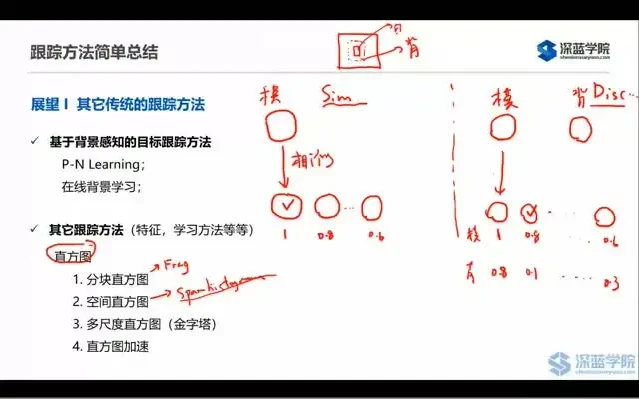 跟踪方法简单总结
深蓝学院
shenlanxueyuan.com
目
背
展望 I 其它传统的跟踪方法
模 Sim
模 背 Disc...
✓ 基于背景感知的目标跟踪方法
P-N Learning;
在线背景学习;
相似
✓ 其它跟踪方法（特征，学习方法等等）
1 0.8 0.6
模 1 0.8 0.6
直方图
Frag
背 0.8 0.1 ..... 0.3
1. 分块直方图
2. 空间直方图
3. 多尺度直方图（金字塔）
4. 直方图加速
深蓝学院
shenlanxueyuan.com